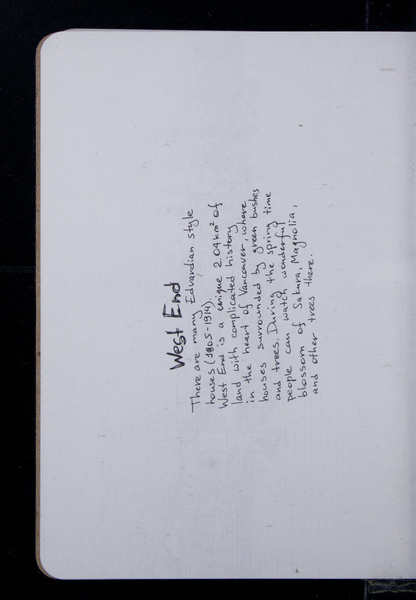 West End
There are many Edvardian style
houses (1805-1914).
West End is a unique 2.04 km² of
land with complicated history
in the heart of Vancouver, where
houses surrounded by green bushes
and trees. During the spring time
people can watch wonderful
blossom of Sakura, Magnolia,
and other trees there.